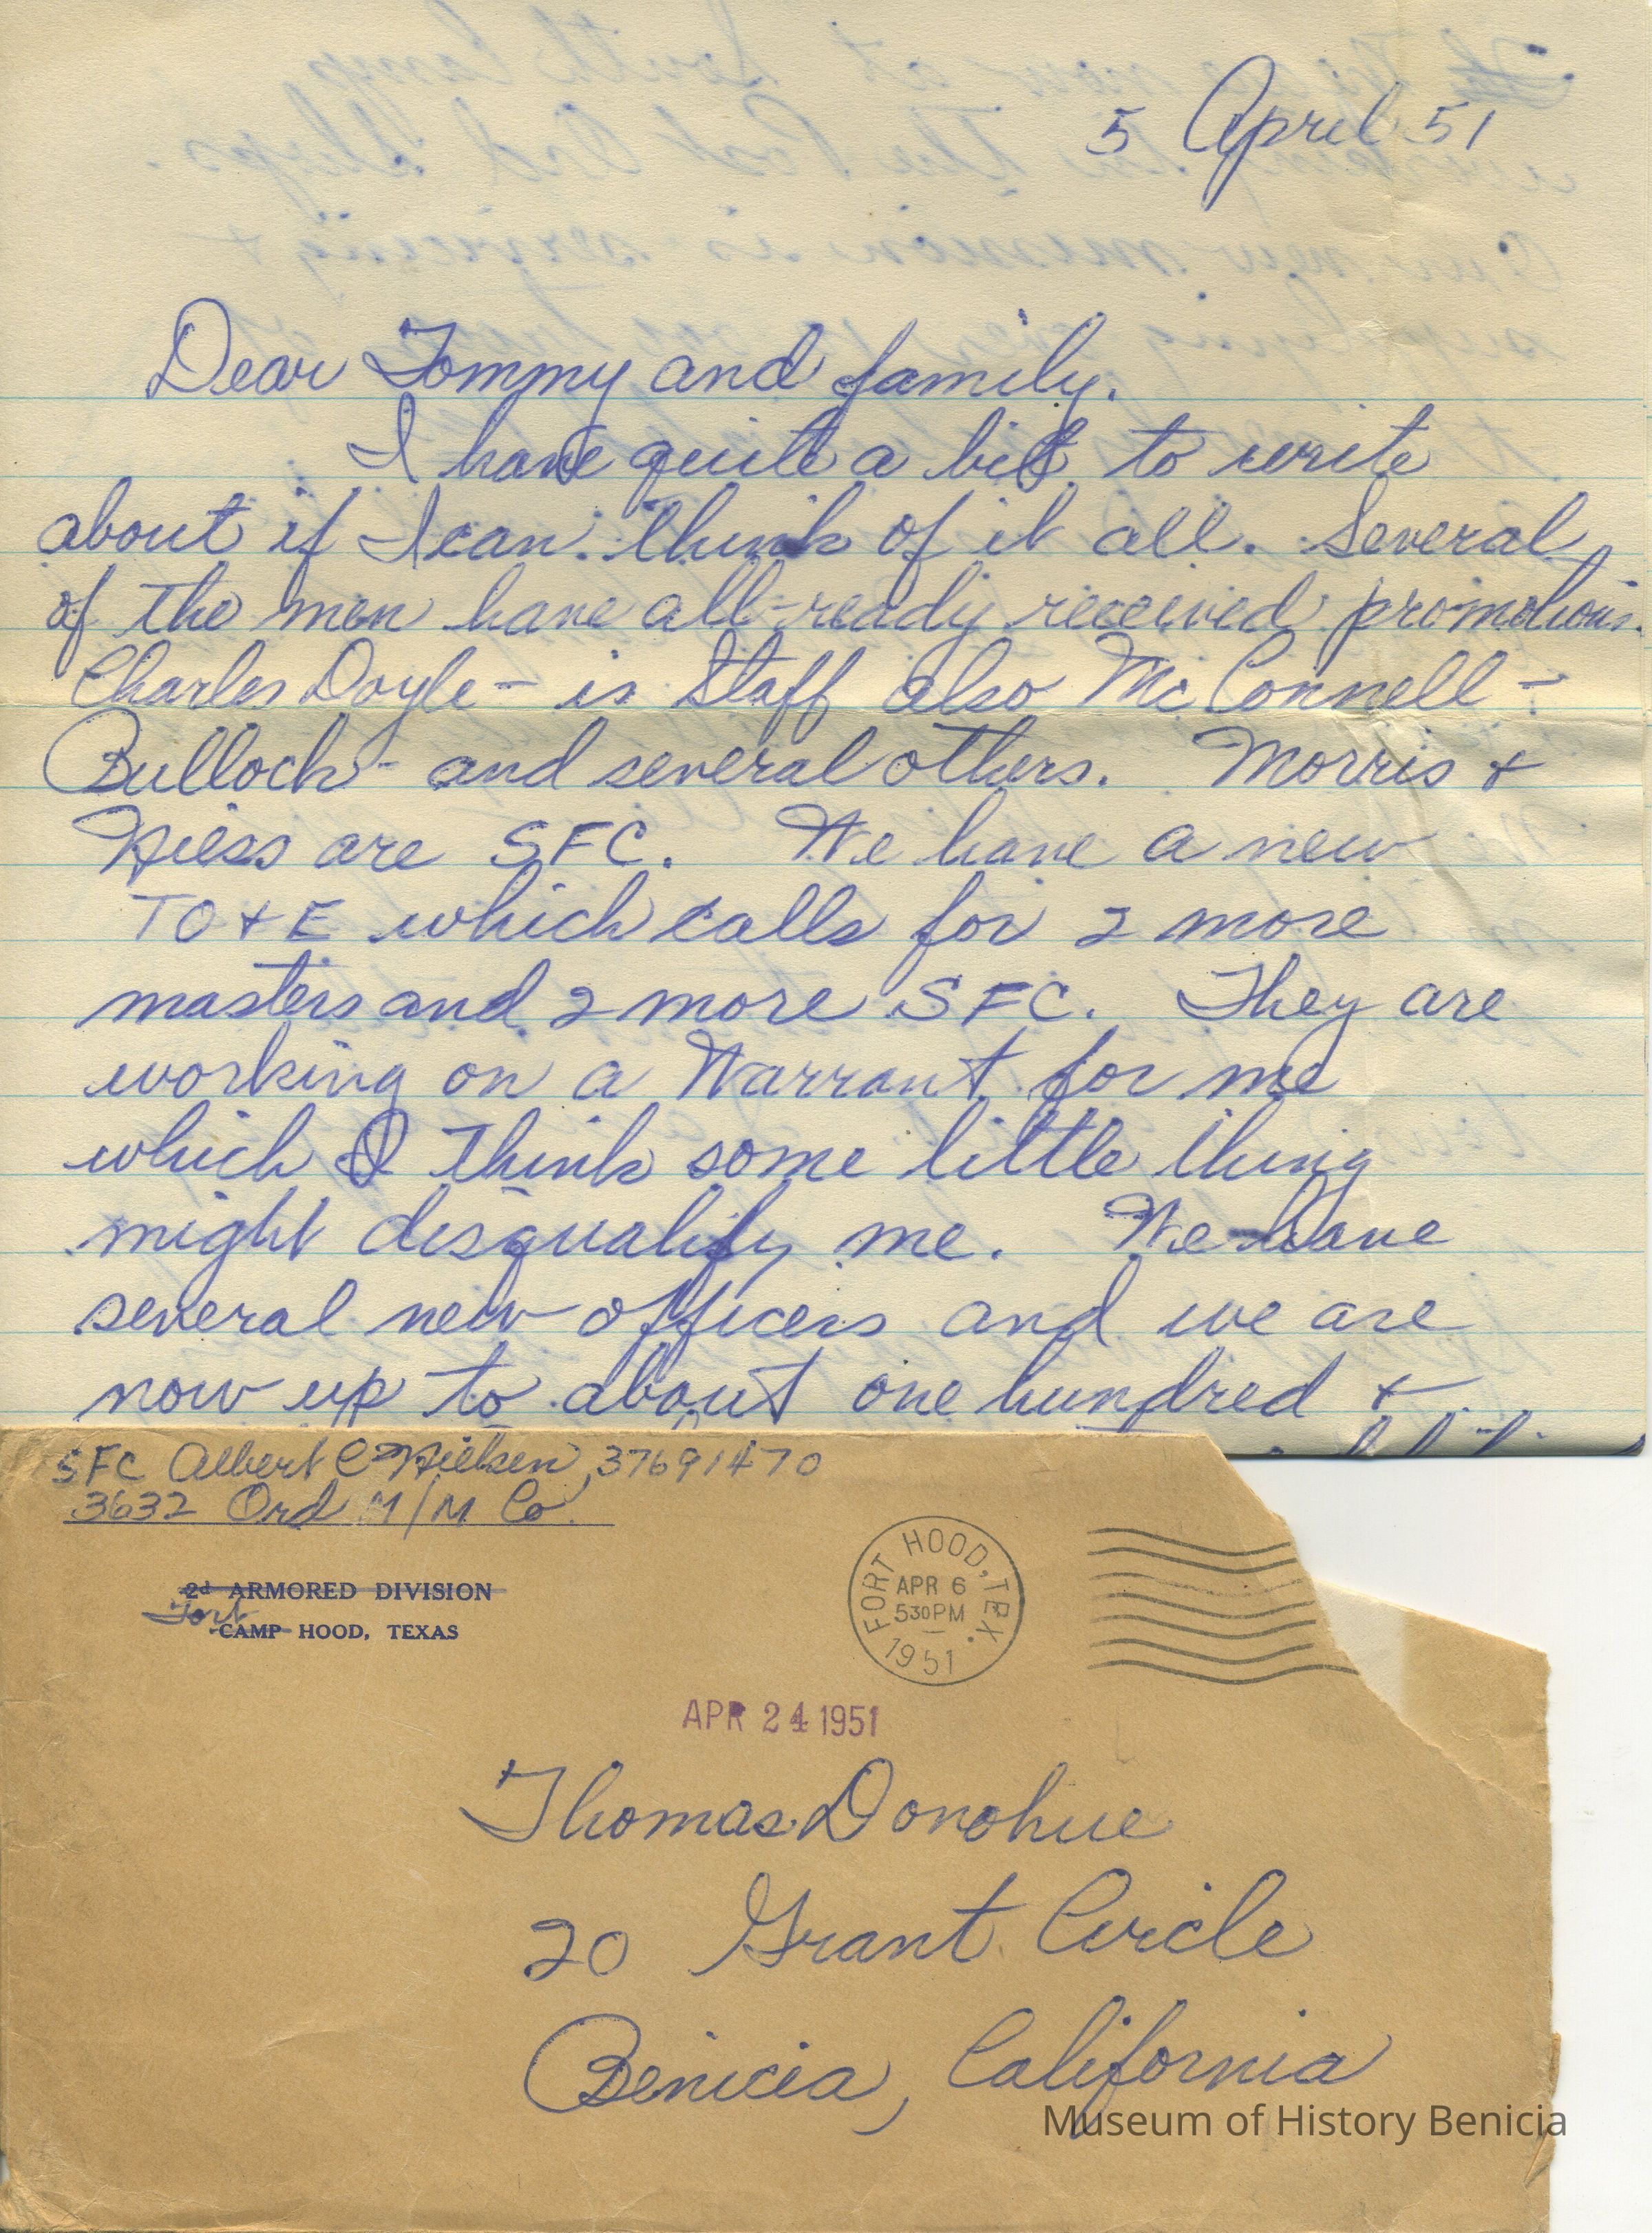 5 April 51
Dear Tommy and family.
I have quite a bit to write
about if I can think of it all. Several
of the men have all-ready received promotions.
Charles Doyle - is Staff also McConnell -
Bullock - and several others. Morris +
are SFC. We have a new
TO+E which calls for 2 more
masters and 2 more SFC. They are
working on a Warrant for me
which I think some little thing
might disqualify me. We have
several new officers and we are
now up to about one hundred +
SFC Albert C Nielsen, 37691470
3632 Ord M/M Co.
2d ARMORED DIVISION
Fort
CAMP HOOD, TEXAS
FORT HOOD, TEX.
APR 6
530PM
1951
APR 24 1951
Thomas Donohue
20 Grant Circle
Benicia, California
Museum of History Benicia